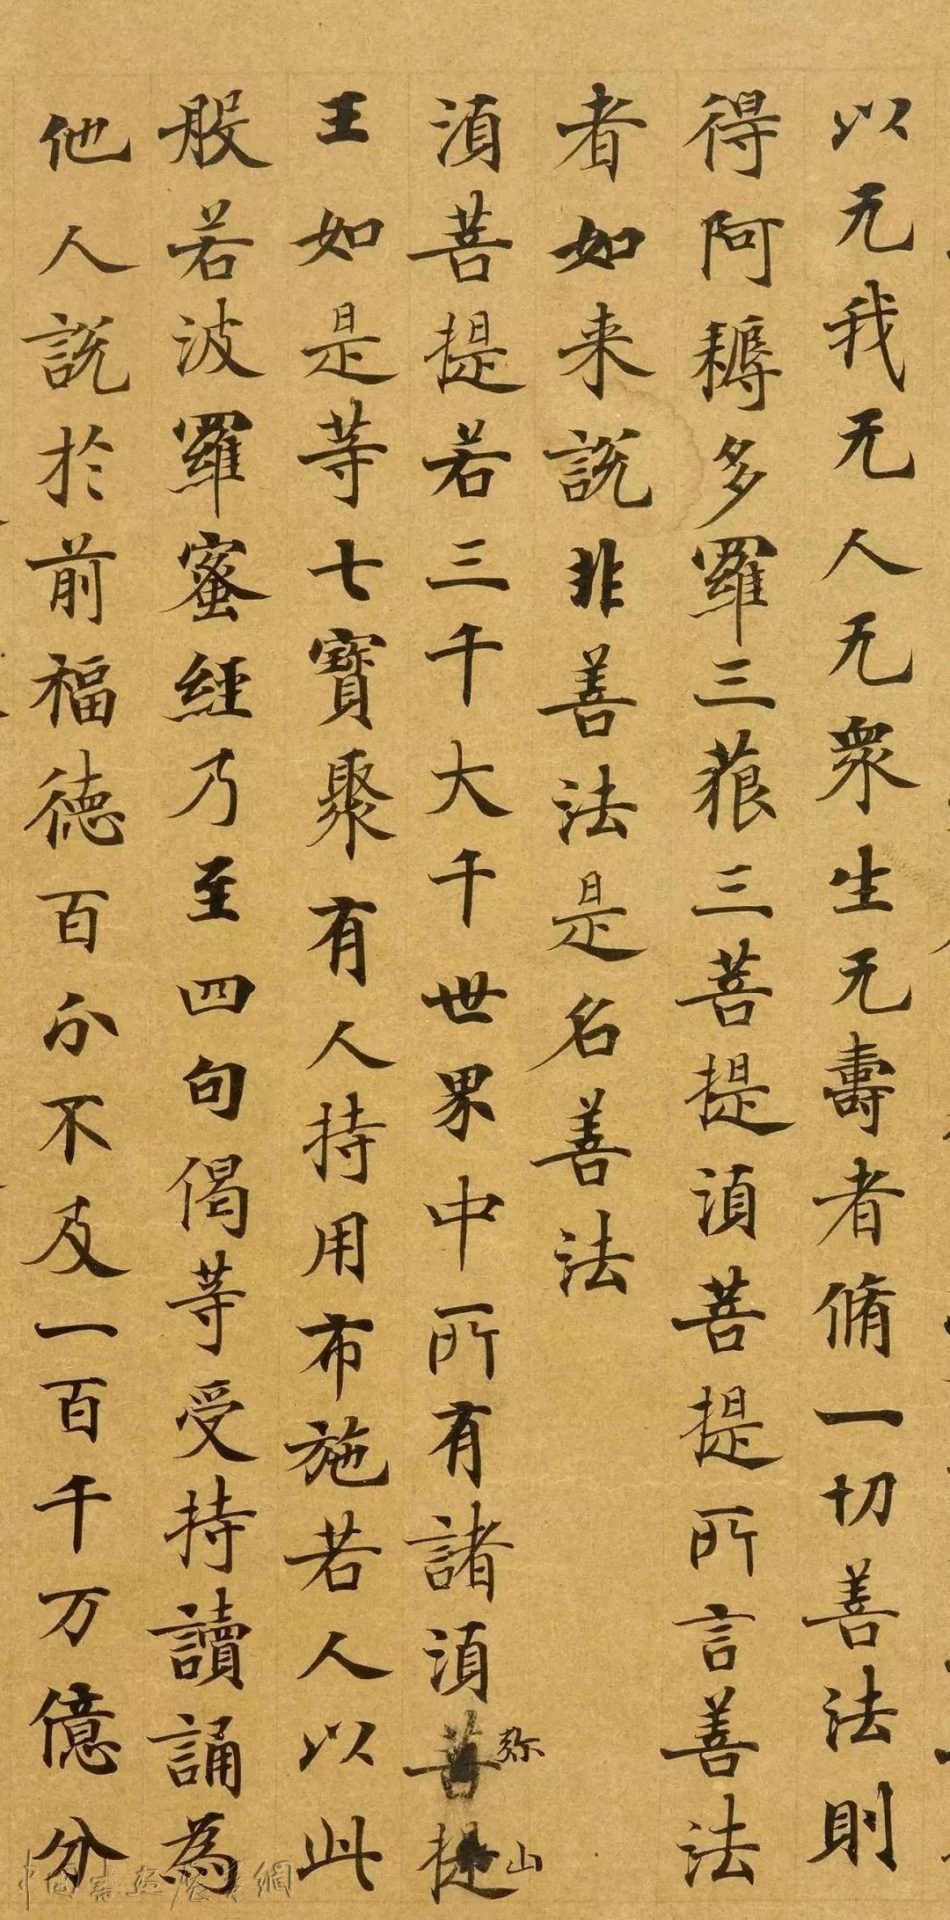 以无我无人无衆生无壽者脩一切善法則
得阿耨多羅三藐三菩提湏菩提所言善法
者如来說非善法是名善法
湏菩提若三千大千世界中所有諸湏菩提
弥山
王如是等七寳聚有人持用布施若人以此
般若波羅蜜經乃至四句偈等受持讀誦為
他人說於前福德百分不及一百千万億分